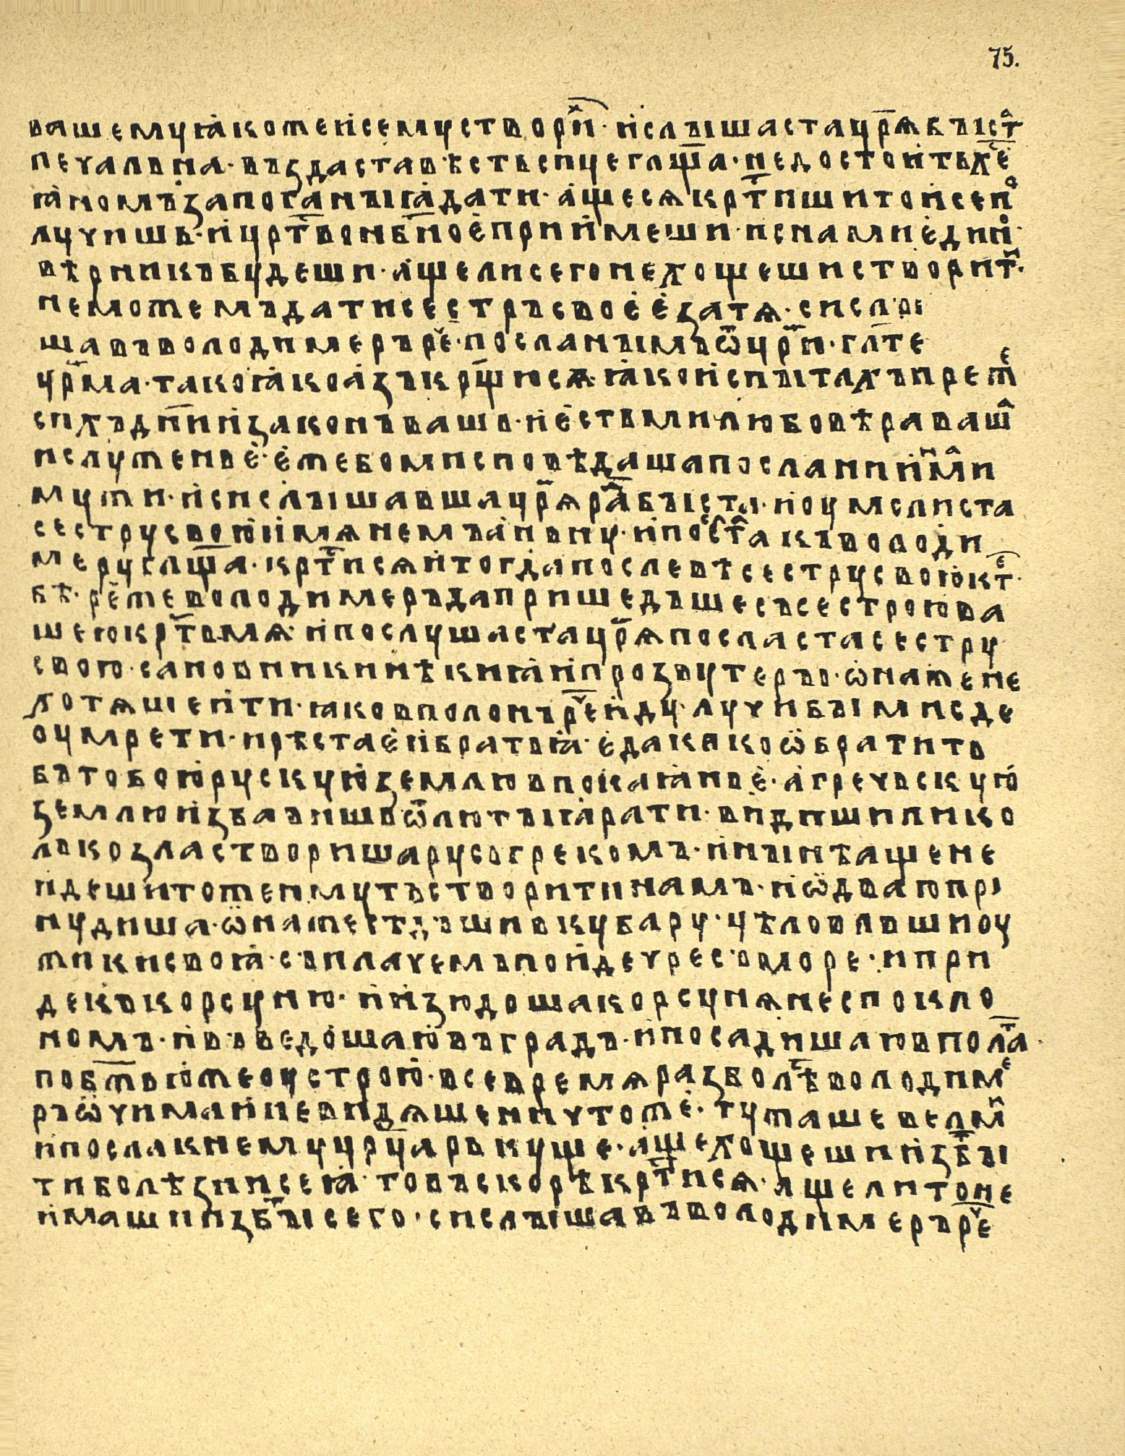 75.
вашемуꙗкожеисемустворихⷨ·ислышастацрѧбыстⷭ҇
печальна·въздаставѣстьсицеглща·недостоитьхⷭ҇е
ꙗномъзапоганыꙗдати·ащесѧкртⷭ҇ишитоисепоⷧ
лучишь·ицртⷭ҇вонбⷭ҇ноеприимеши·иснамиединоⷨ
вѣрникъбудеши·ащелисегонехощешистворитⷨ·
неможемъдатисестрысвоеезатѧ·сислы
шавъволодимеръреⷱ·посланымъѿцри·глте
црма·такоꙗкоазъкрщюсѧꙗкоиспытахъпрежⷭ҇
сихъднииизаконъвашь·иестьмилюбовѣравашⷶ
ислуженье·ежебомисповѣдашапосланиинⷨами
мужи·исислышавшацрѧрадабыста·иоумолиста
сеструсвоюимѧнемъаньну·ипослⷭ҇такъволоди
меруглща·кртⷭ҇исѧитогдапослевѣсеструсвоюктⷠ·
бѣ·реⷱжеволодимеръдапришедъшесъсестроюва
шеюкртⷭ҇ьмѧ·ипослушастацрѧпосластасестру
свою·сановникинѣкиꙗипрозвутеръı·ѡнажене
хотѧшеити·ꙗковполонъреⷱиду·лучибымисде
оумрети·ирѣстаеибратьꙗ·едакакоѡбратить
бътобоюрускуюземлювпокаꙗнье·агречьскую
землюизбавишьѿлютыꙗрати·видишилико
лькозластворишарусьгрекомъ·инынѣащене
идешитожеимутьстворитинамъ·иѡдваюпри
нудиша·ѡнажесѣдъшивкубару·цѣловавшиоу
жикисвоꙗ·съплачемъпоидечресъморе·ипри
декъкорсуню·иизидошакорсунѧнеспокло
номъ·ивъведошаювъградъ·ипосадишаювполатⷮ·
побжтⷭ҇вьюжеоустрою·всевремѧразболѣсѧволодимⷷ
ръѡчималиневидѧшеничтоже·тужашевелмⷨи
ипослакнемуцрцаръкуще·ащехощешиизбⷷы
тиболѣзнисеꙗ·товъскорѣкртⷭ҇исѧ·ащелитоне
имашиизбытиⷷсего·сислышавъволодимеръреⷱ